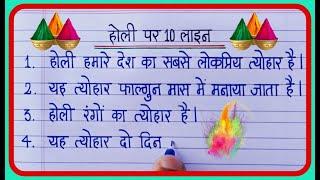 होली पर 10 लाइन
1. होली हमारे देश का सबसे लोकप्रिय त्योहार है।
2. यह त्योहार फाल्गुन मास में मनाया जाता है।
3. होली रंगों का त्योहार है।
4. यह त्योहार दो दिन